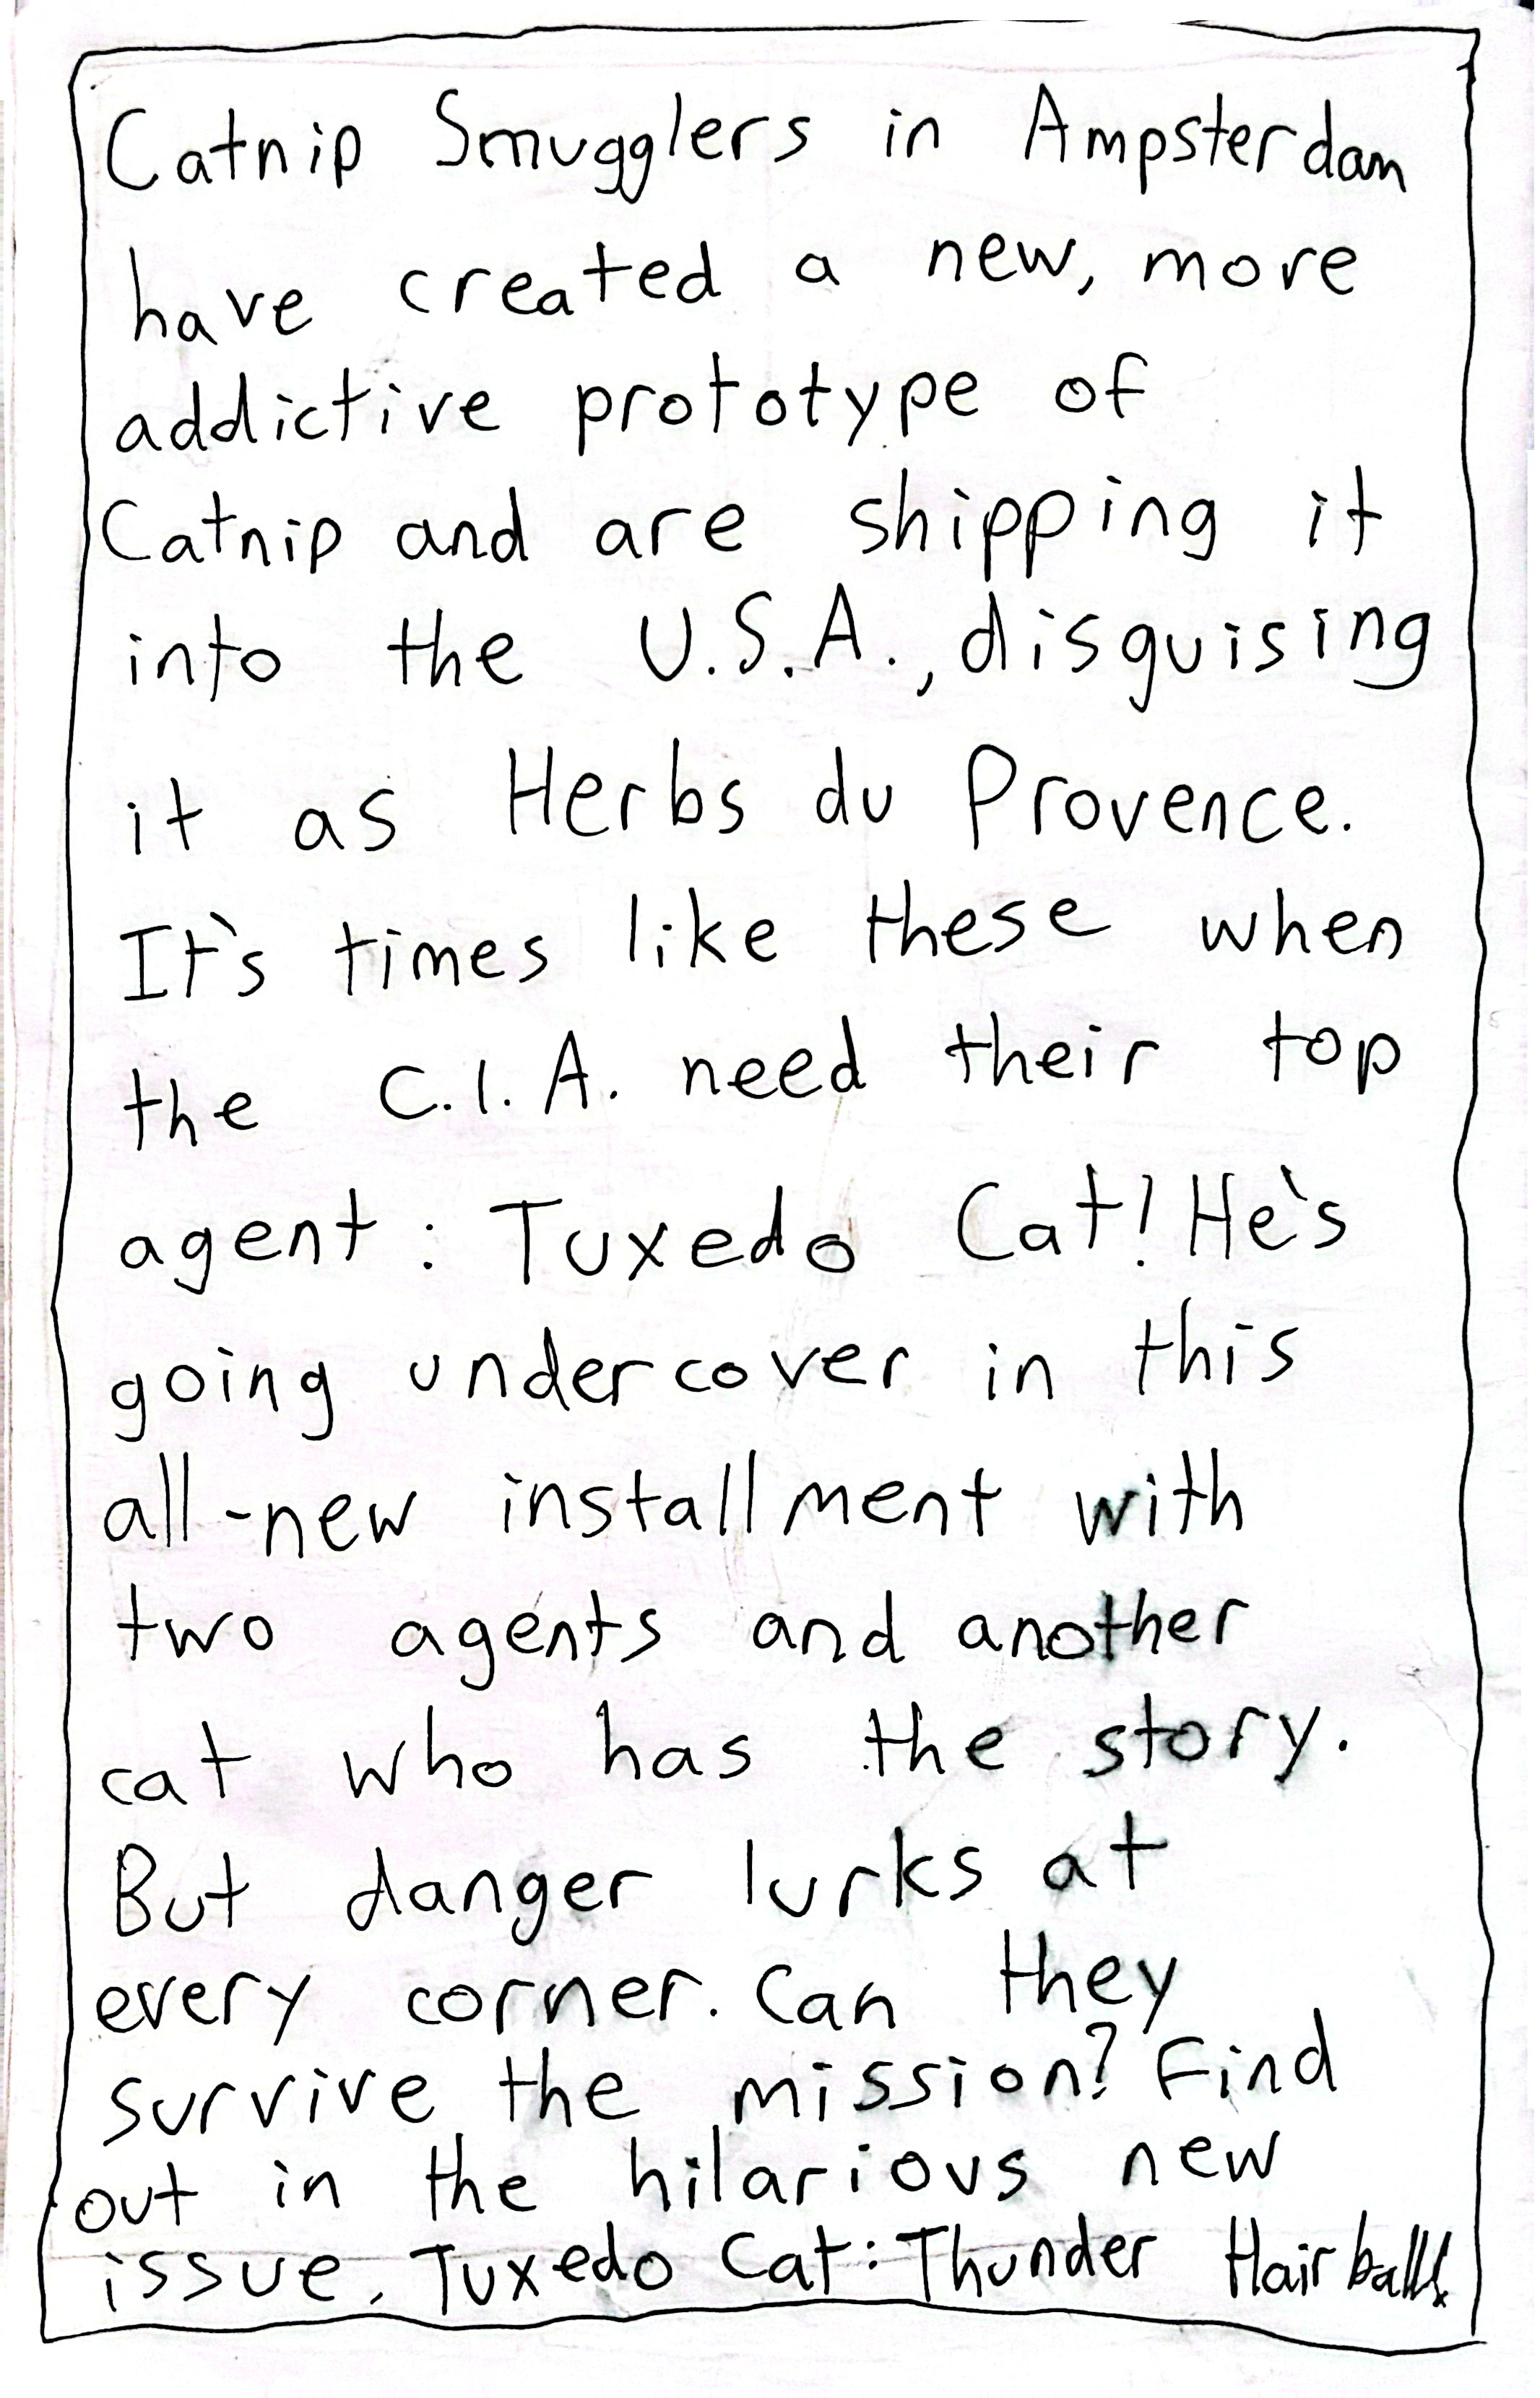 Catnip Smugglers in Ampsterdam
have created a new, more
addictive prototype of
Catnip and are shipping it
into the U.S.A., disguising
it as Herbs du Provence.
It's times like these when
the C.I.A. need their top
agent: Tuxedo Cat! He's
going undercover in this
all-new installment with
two agents and another
cat who has the story.
But danger lurks at
every corner. Can they
survive the mission? Find
out in the hilarious new
issue, Tuxedo Cat: Thunder Hairball!